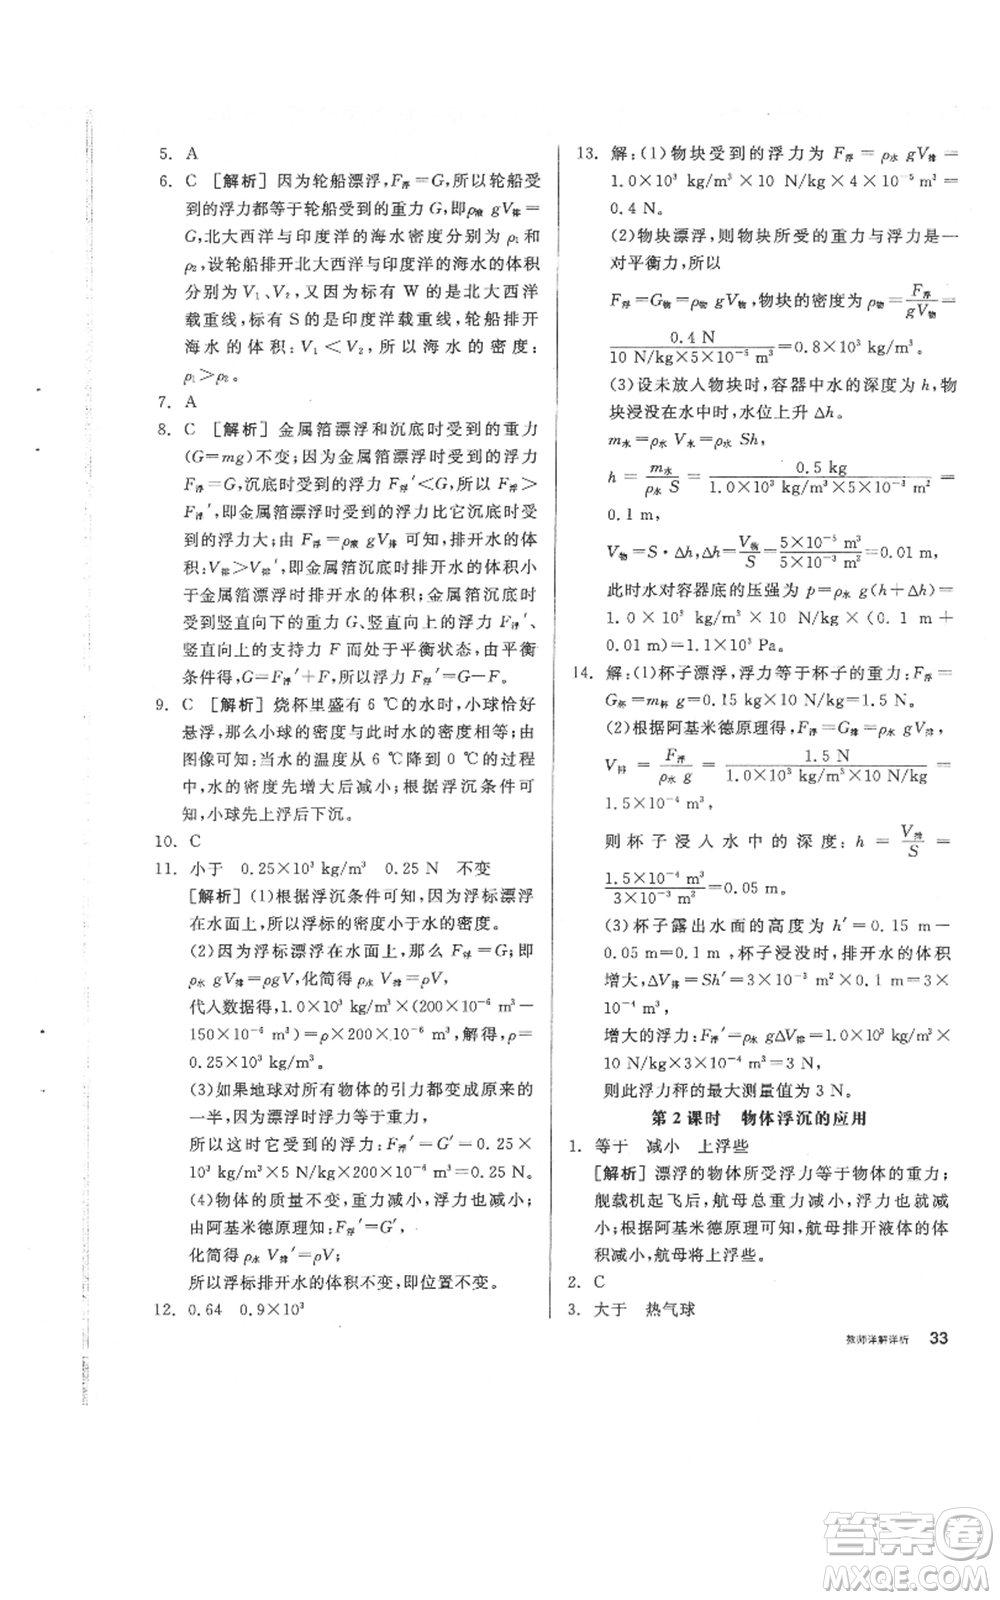 5. A
6. C [解析] 因为轮船漂浮,F浮=G,所以轮船受
到的浮力都等于轮船受到的重力 G,即ρ液 gV排=
G,北大西洋与印度洋的海水密度分别为 ρ₁ 和
ρ₂,设轮船排开北大西洋与印度洋的海水的体积
分别为 V₁、V₂,又因为标有 W 的是北大西洋
载重线,标有 S 的是印度洋载重线,轮船排开
海水的体积:V₁<V₂,所以海水的密度:
ρ₁>ρ₂。
7. A
8. C [解析] 金属箔漂浮和沉底时受到的重力
(G=mg)不变;因为金属箔漂浮时受到的浮力
F浮=G,沉底时受到的浮力 F浮′<G,所以F浮>
F浮′,即金属箔漂浮时受到的浮力比它沉底时的
浮力大;由 F浮=ρ液 gV排 可知,排开水的体
积:V排>V排′,即金属箔沉底时排开水的体积小
于金属箔漂浮时排开水的体积;金属箔沉底时
受到竖直向下的重力 G、竖直向上的浮力 F浮′、
竖直向上的支持力 F 而处于平衡状态,由平衡
条件得:G=F浮′+F,则F浮′=G－F。
9. C [解析] 烧杯里盛有 6 ℃的水时,小球恰好
悬浮,那么小球的密度与 6 ℃水的密度相等;由
图像可知:当水的温度从 6 ℃降到 0 ℃的过程
中,水的密度先增大后减小;根据浮沉条件可
知,小球先上浮后下沉。
10. C
11. 小于 0.25×10³ kg/m³ 0.25 N 不变
[解析] (1)根据浮沉条件可知,因为浮标漂浮
在水面上,所以浮标的密度小于水的密度。
(2)因为浮标漂浮在水面上,那么 F浮=G;即
ρ水 gV排=ρgV,化简得 ρ水 V排=ρV,
代入数据得,1.0×10³ kg/m³×(200×10⁻⁶ m³－
150×10⁻⁶ m³)=ρ×200×10⁻⁶ m³,解得,ρ=
0.25×10³ kg/m³。
(3)如果地球对所有物体的引力都变成原来的
一半,因为漂浮时浮力等于重力,
所以这时受到的浮力:F浮′=G′=0.25×
10³ kg/m³×5 N/kg×200×10⁻⁶ m³=0.25 N。
(4)物体的质量不变,重力减小,浮力也减小;
由阿基米德原理知:F浮′=G′,
化简得 ρ水 V排′=ρV;
所以浮标排开水的体积不变,即位置不变。
12. 0.64 0.9×10³
13. 解:(1)物块受到的浮力为 F浮=ρ水 gV排=
1.0×10³ kg/m³×10 N/kg×4×10⁻⁵ m³=
0.4 N。
(2)物块漂浮,则物块所受的重力与浮力是一
对平衡力,所以
F浮=G物=ρ物 gV物,物块的密度为 ρ物=F浮/gV物=
0.4 N/(10 N/kg×5×10⁻⁵ m³)=0.8×10³ kg/m³。
(3)设未放入物块时,容器中水的深度为 h,物
块浸没在水中时,水位上升 Δh。
m水=ρ水 V水=ρ水 Sh,
h=m水/(ρ水 S)=0.5 kg/(1.0×10³ kg/m³×5×10⁻³ m²)=
0.1 m,
V物=S·Δh,Δh=V物/S=5×10⁻⁵ m³/(5×10⁻³ m²)=0.01 m,
此时水对容器底的压强为 p=ρ水 g(h+Δh)=
1.0×10³ kg/m³×10 N/kg×(0.1 m+
0.01 m)=1.1×10³ Pa。
14. 解:(1)杯子漂浮,浮力等于杯子的重力:F浮=
G杯=m杯 g=0.15 kg×10 N/kg=1.5 N。
(2)根据阿基米德原理得,F浮=G排=ρ水 gV排,
V排=F浮/(ρ水 g)=1.5 N/(1.0×10³ kg/m³×10 N/kg)=
1.5×10⁻⁴ m³,
则杯子浸入水中的深度:h=V排/S=
1.5×10⁻⁴ m³/(3×10⁻³ m²)=0.05 m。
(3)杯子露出水面的高度为 h′=0.15 m－
0.05 m=0.1 m,杯子浸没时,排开水的体积
增大,ΔV排=Sh′=3×10⁻³ m²×0.1 m=3×
10⁻⁴ m³,
增大的浮力:F浮′=ρ水 gΔV排=1.0×10³ kg/m³×
10 N/kg×3×10⁻⁴ m³=3 N,
则此浮力秤的最大测量值为 3 N。
第 2 课时 物体浮沉的应用
1. 等于 减小 上浮些
[解析] 漂浮的物体所受浮力等于物体的重力;
舰载机起飞后,航母总重力减小,浮力也就减
小;根据阿基米德原理可知,航母排开液体的体
积减小,航母将上浮些。
2. C
3. 大于 热气球
教师详解详析 33
答案圈
MXQE.COM